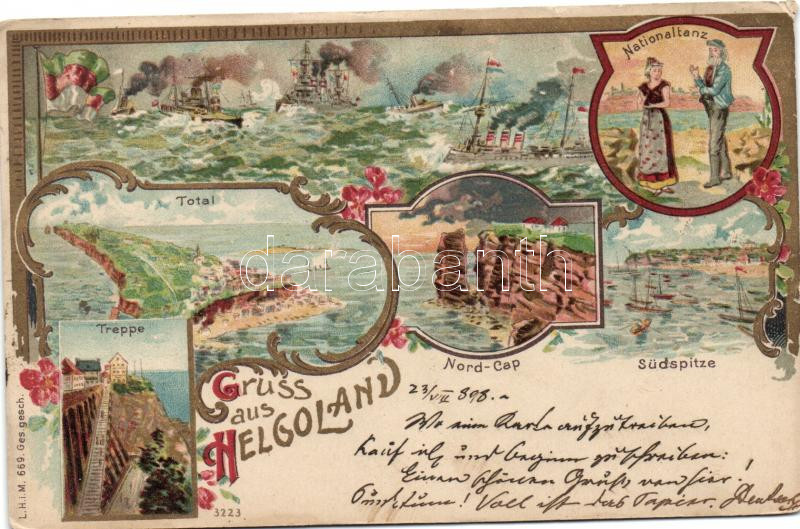 Nationaltanz
Total
Treppe
Nord-Cap
Südspitze
Gruss
aus
HELGOLAND
L.H.i.M. 669. Ges. gesch.
3223
23/VII 898.
Wo eine Karte aufzutreiben,
Kauf ich und beginn zu schreiben:
Einen schönen Gruß von hier!
Punktum! Voll ist das Papier.
darabanth